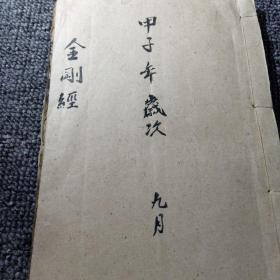 甲子年歲次
九月
金剛經